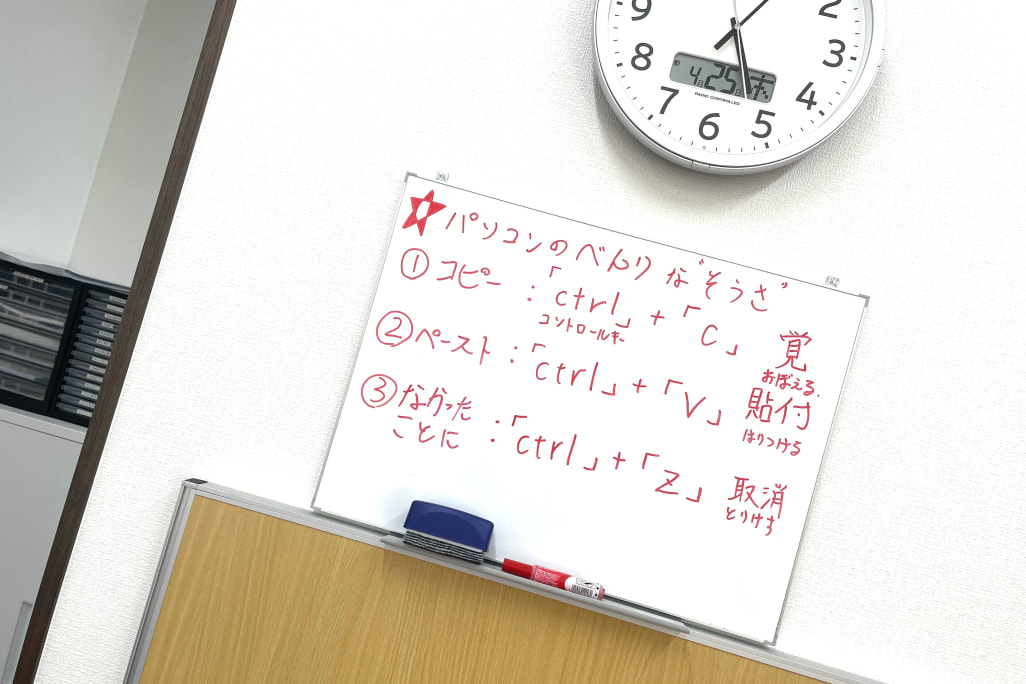 9 2
8 3
7 4
6 5
4月25日 木
RADIO CONTROLLED
パソコンのべんりな"そうさ"
① コピー：「ctrl」+「C」 覚
コントロールキー おぼえる.
② ペースト：「ctrl」+「V」 貼付
はりつける
③ なかった
ことに：「ctrl」+「Z」 取消
とりけす